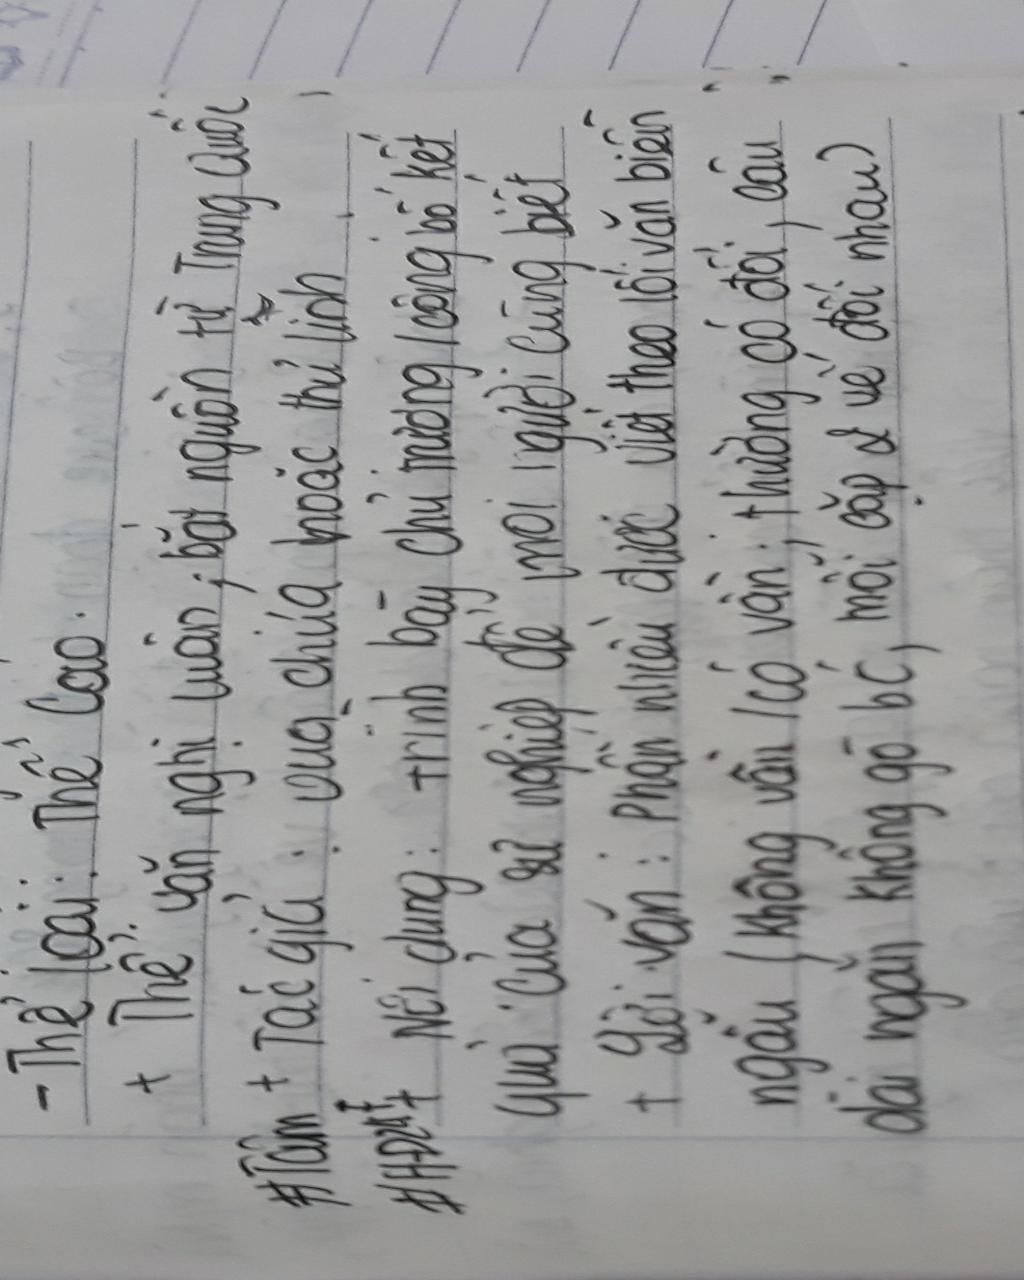 - Thể loại: Thể Cáo.
+ Thể văn nghị luận, bắt nguồn từ Trung Quốc
#Tâm + Tác giả: vua chúa hoặc thủ lĩnh
+ Nội dung: trình bày chủ trương / công bố kết
quả của sự nghiệp để mọi người cùng biết
+ Lời văn: Phần nhiều được viết theo lối văn biền
ngẫu (không vần / có vần, thường có đối, câu
dài ngắn không gò bó, mỗi cặp 2 vế đối nhau)